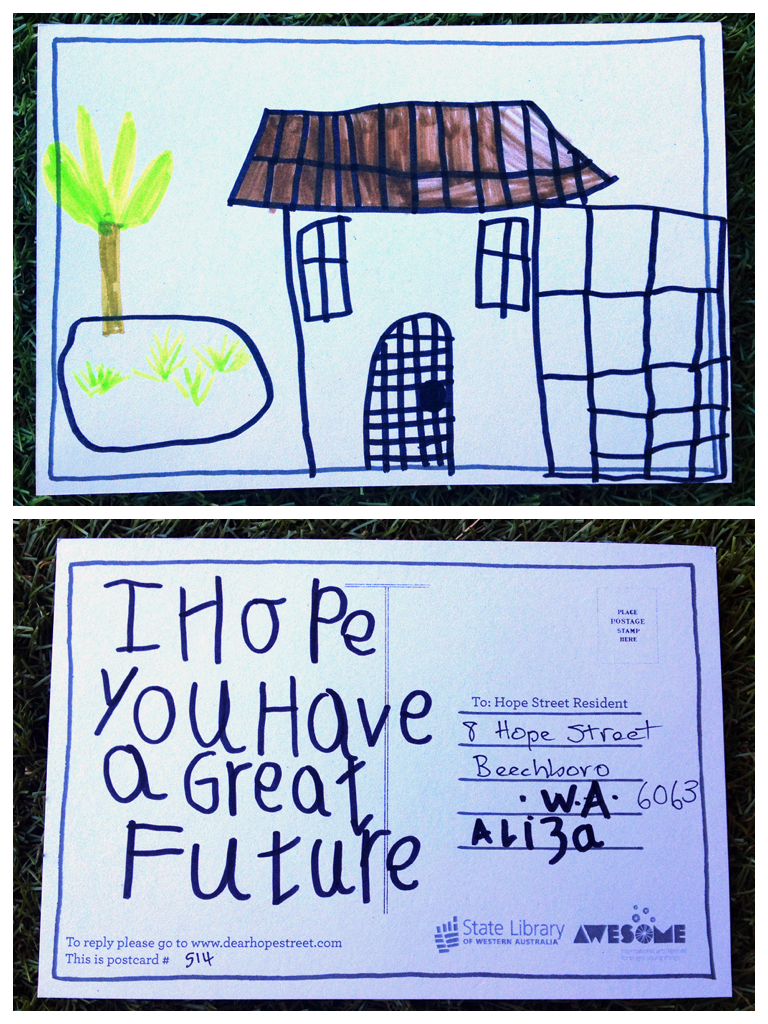 I HoPe
You Have
a Great
Future
PLACE
POSTAGE
STAMP
HERE
To: Hope Street Resident
8 Hope Street
Beechboro
W.A. 6063
ALiza
To reply please go to www.dearhopestreet.com
This is postcard # 514
State Library
OF WESTERN AUSTRALIA
AWESOME